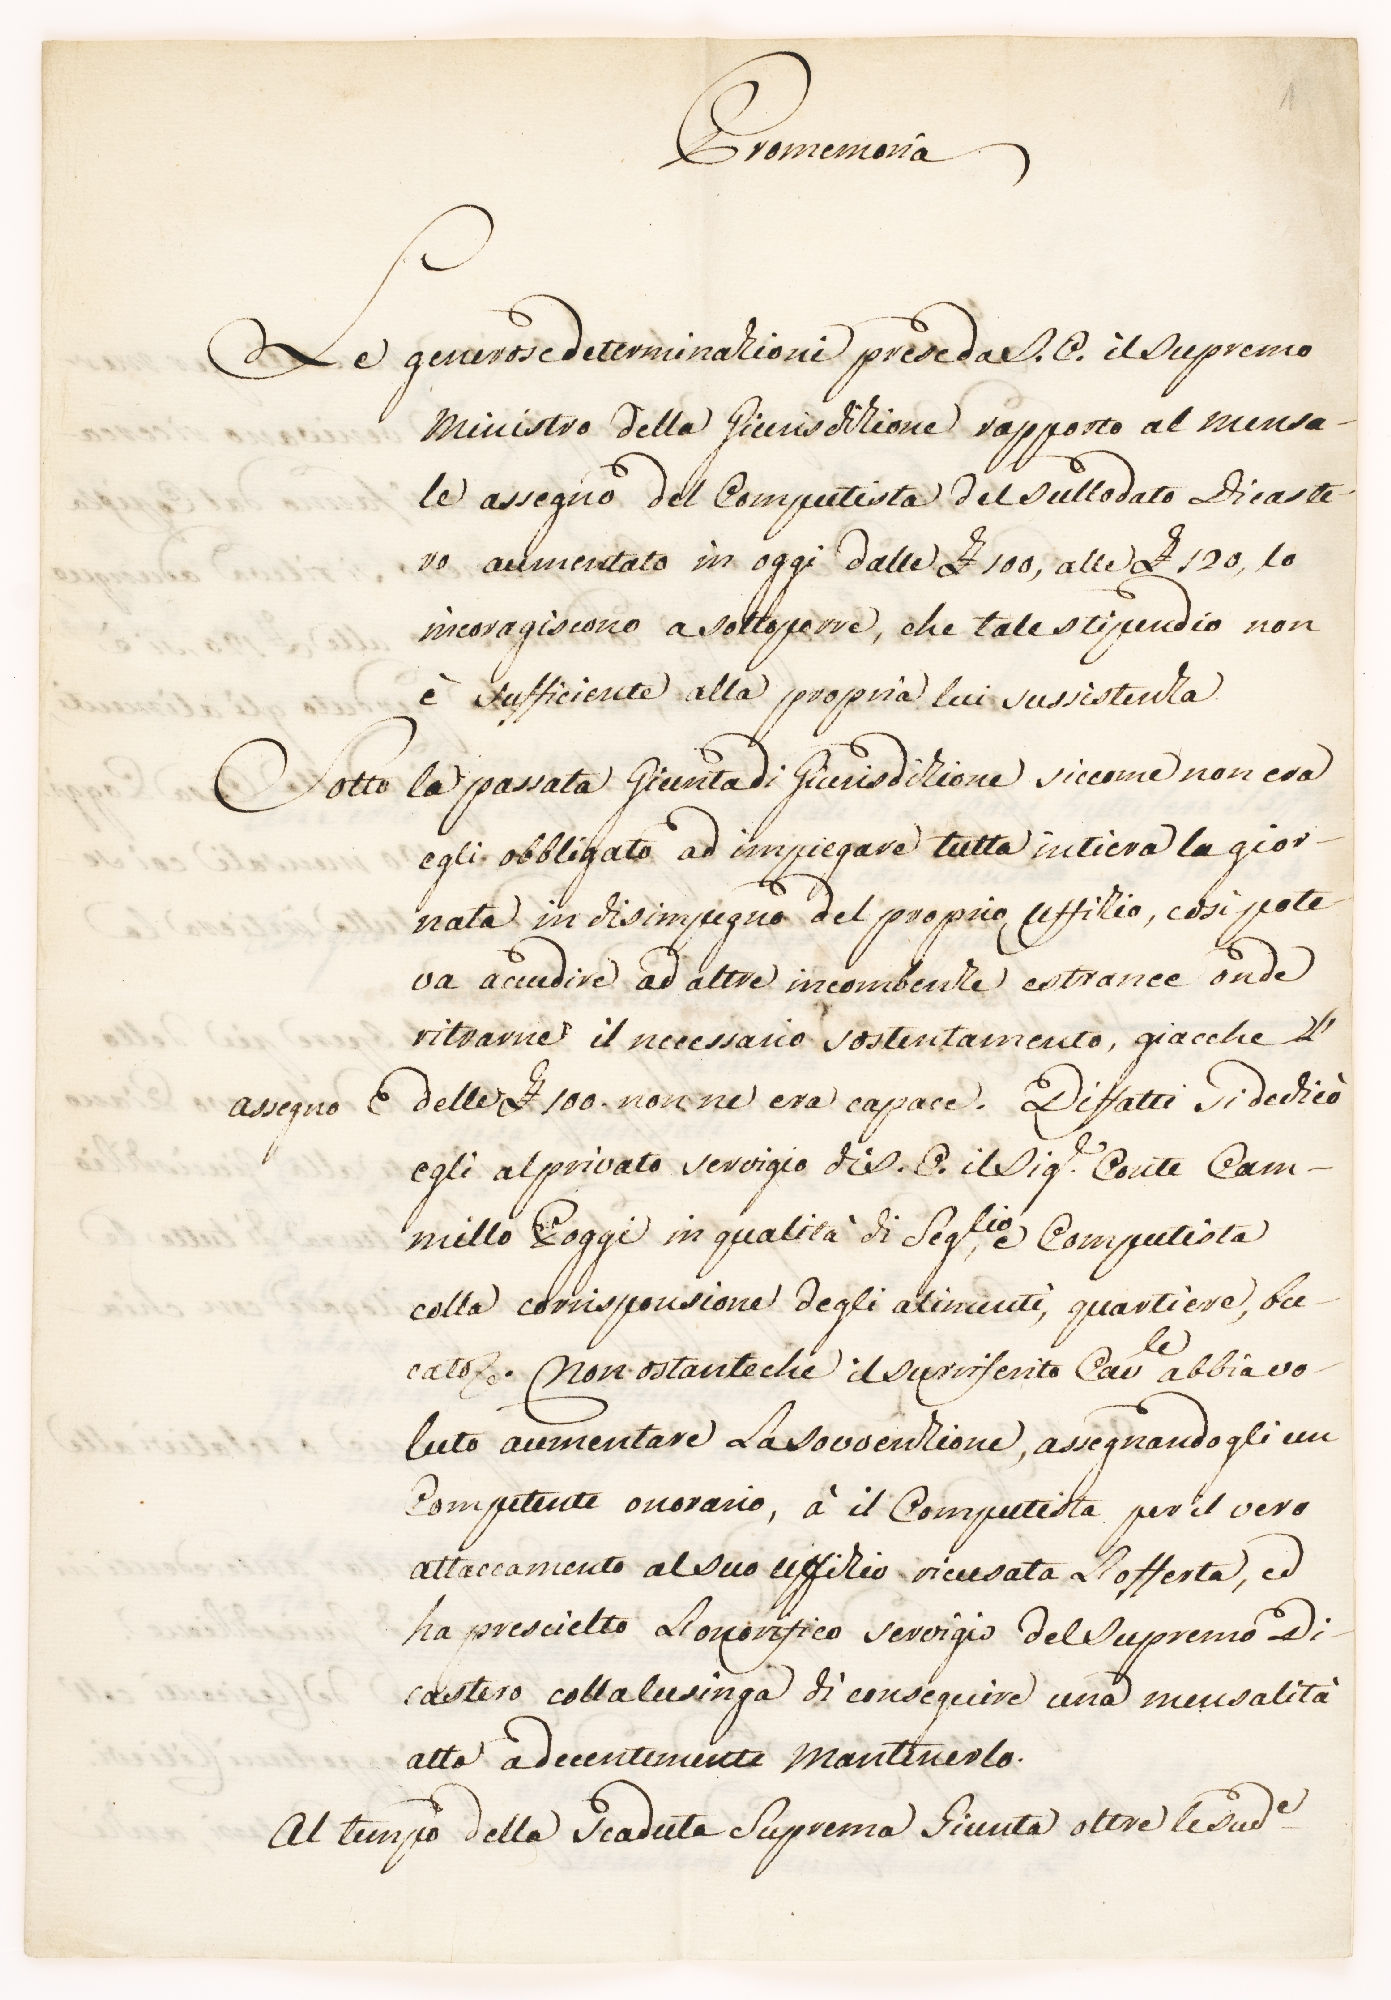 1
Promemoria
Le generose determinazioni prese da S. E. il Supremo
Ministro della Giurisdizione rapporto al mensa-
le assegno del Computista del Sullodato Dicaste-
ro aumentato in oggi dalle £ 100, alle £ 120, lo
incoragiscono a sottoporre, che tale stipendio non
è sufficiente alla propria lui sussistenza
Sotto la passata Giunta di Giurisdizione siccome non era
egli obbligato ad impiegare tutta intiera la gior-
nata in disimpegno del proprio Uffizio, così pote
va accudire ad altre incombenze estranee onde
ritrarne il necessario sostentamento, giacche l'
assegno E delle £ 100. non ne era capace. Diffatti si dedicò
egli al privato servigio di S. E. il Sig.r Conte Cam-
millo Poggi in qualità di Seg.rio, e Computista
colla corrisponsione degli alimenti, quartiere, bu-
cato &c. Non ostante che il surriferito Cav.le abbia vo-
luto aumentare La Sovvenzione, assegnandogli un
Competente onorario, à il Computista per il vero
attaccamento al suo Uffizio ricusata L'offerta, ed
ha prescielto L'onorifico servigio del Supremo Di-
castero colla lusinga di conseguire una mensalità
atta a decentemente Mantenerlo.
Al tempo della scaduta Suprema Giunta oltre le sud.e